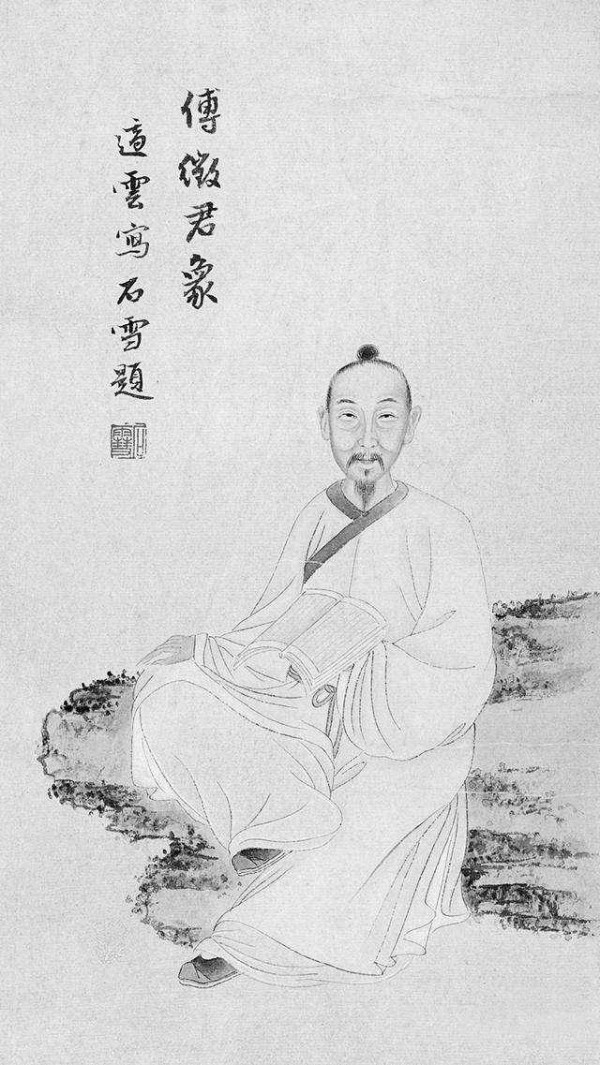 傅徵君象
適雲寫石雪題
石雪